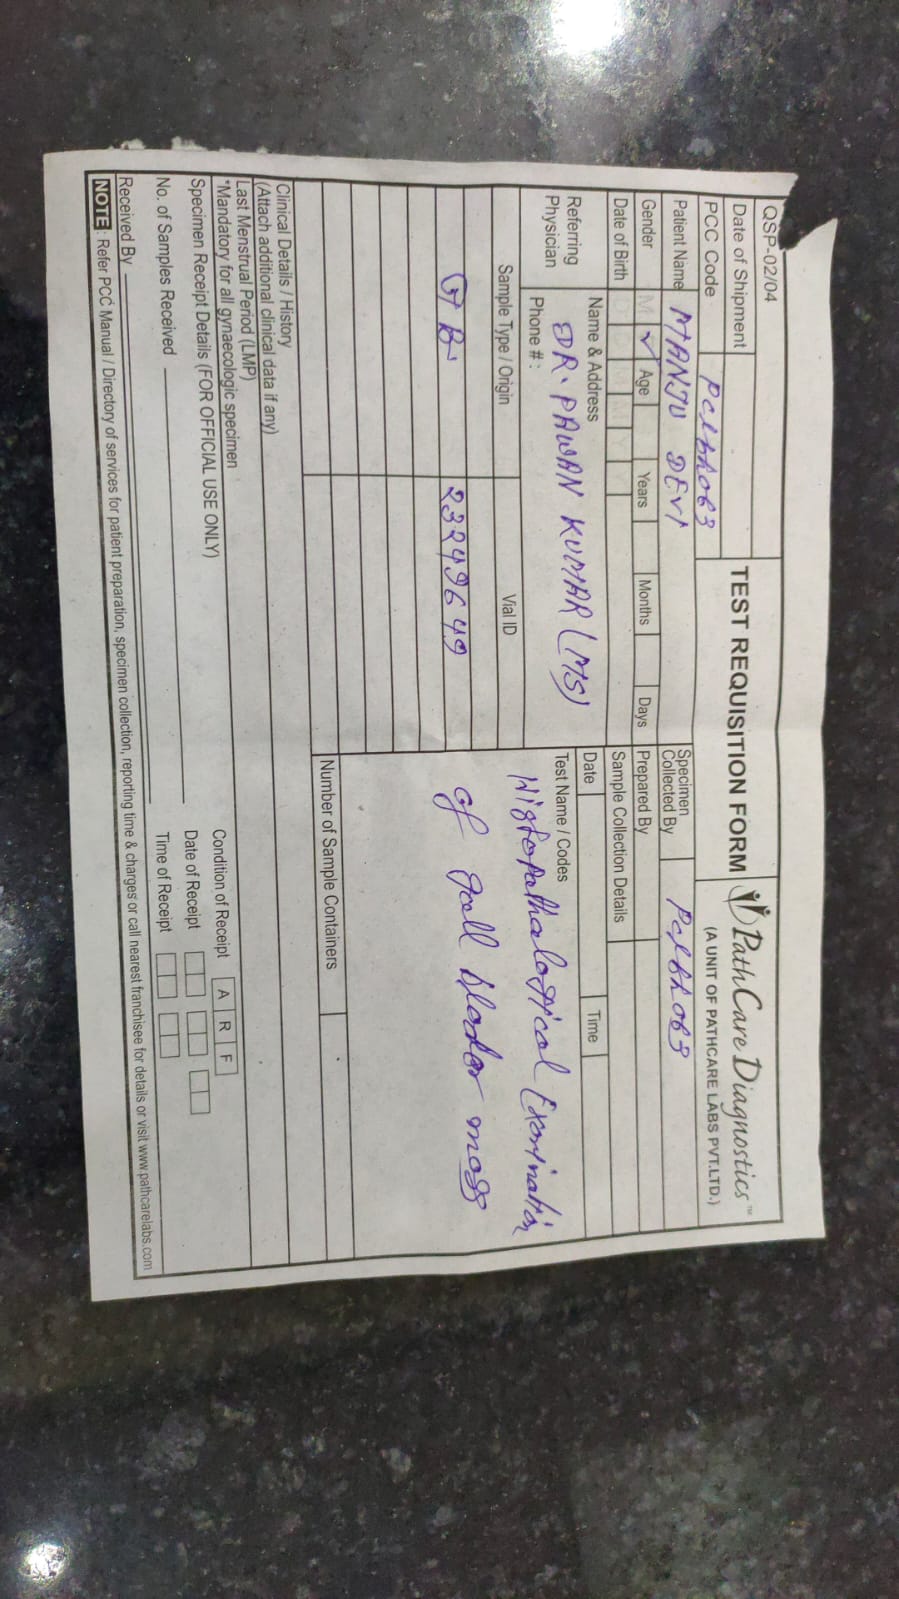 QSP-02/04
Date of Shipment
TEST REQUISITION FORM
PathCare Diagnostics™
(A UNIT OF PATHCARE LABS PVT.LTD.)
PCC Code
Patient Name MANJU DEVI
Specimen Collected By
Gender M ✓ Age Years Months Days
Prepared By
Date of Birth D D M M Y Y
Sample Collection Details
Date Time
Referring Physician
Name & Address
DR. PAWAN KUMAR (MS)
Phone # :
Test Name / Codes
Histopathalogical Exmination
of gall blader mass
Sample Type / Origin Vial ID
GB 23249649
Number of Sample Containers
Clinical Details / History
(Attach additional clinical data if any)
Last Menstrual Period (LMP)
*Mandatory for all gynaecologic specimen
Specimen Receipt Details (FOR OFFICIAL USE ONLY)
Condition of Receipt A R F
No. of Samples Received
Date of Receipt
Received By
Time of Receipt
NOTE : Refer PCC Manual / Directory of services for patient preparation, specimen collection, reporting time & charges or call nearest franchisee for details or visit www.pathcarelabs.com